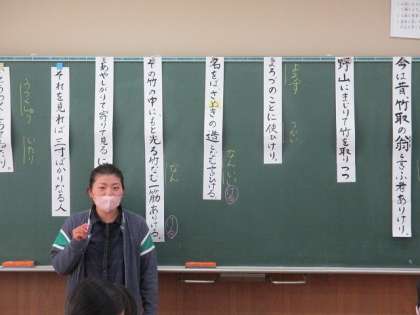 今は昔、竹取の翁と言ふ者ありけり。
野山にまじりて竹を取りつつ
よろづのことに使ひけり。
よろず
つかい
名をばさぬきの造となむいひける。
なんいい
その竹の中に、もと光る竹なむ一筋ありける。
なん
あやしがりて寄りて見るに
それを見れば三寸ばかりなる人
うつくしゅう
いたり